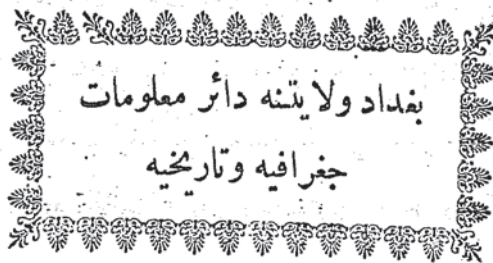 بغداد ولايتنه دائر معلومات
جغرافيه وتاريخيه